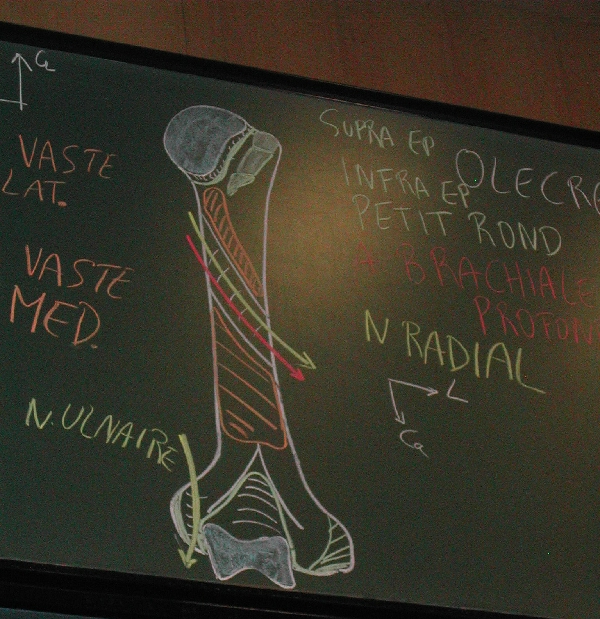 VASTE
LAT.
VASTE
MED.
N. ULNAIRE
SUPRA EP
INFRA EP
PETIT ROND
OLECR
A BRACHIALE
PROFON
N RADIAL
L
Ca